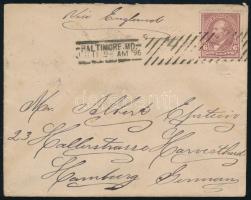 Via England
BALTIMORE, MD.
11 AM '96
Mr. Albert Epstein
23 Hallerstrasse Harvestehude
Hamburg German